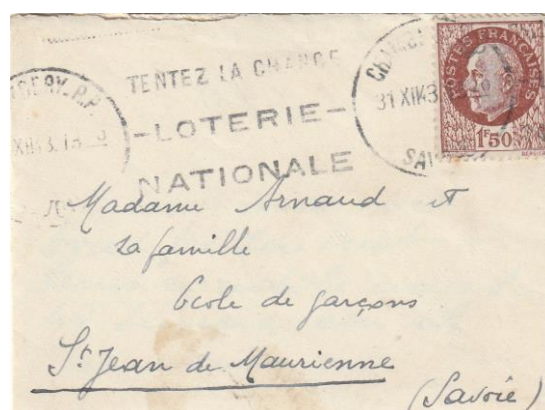 TENTEZ LA CHANCE
-LOTERIE-
NATIONALE
31 XII 43
POSTES FRANÇAISES
1F50
Madame Arnaud et
la famille
Ecole de garçons
St Jean de Maurienne
(Savoie)